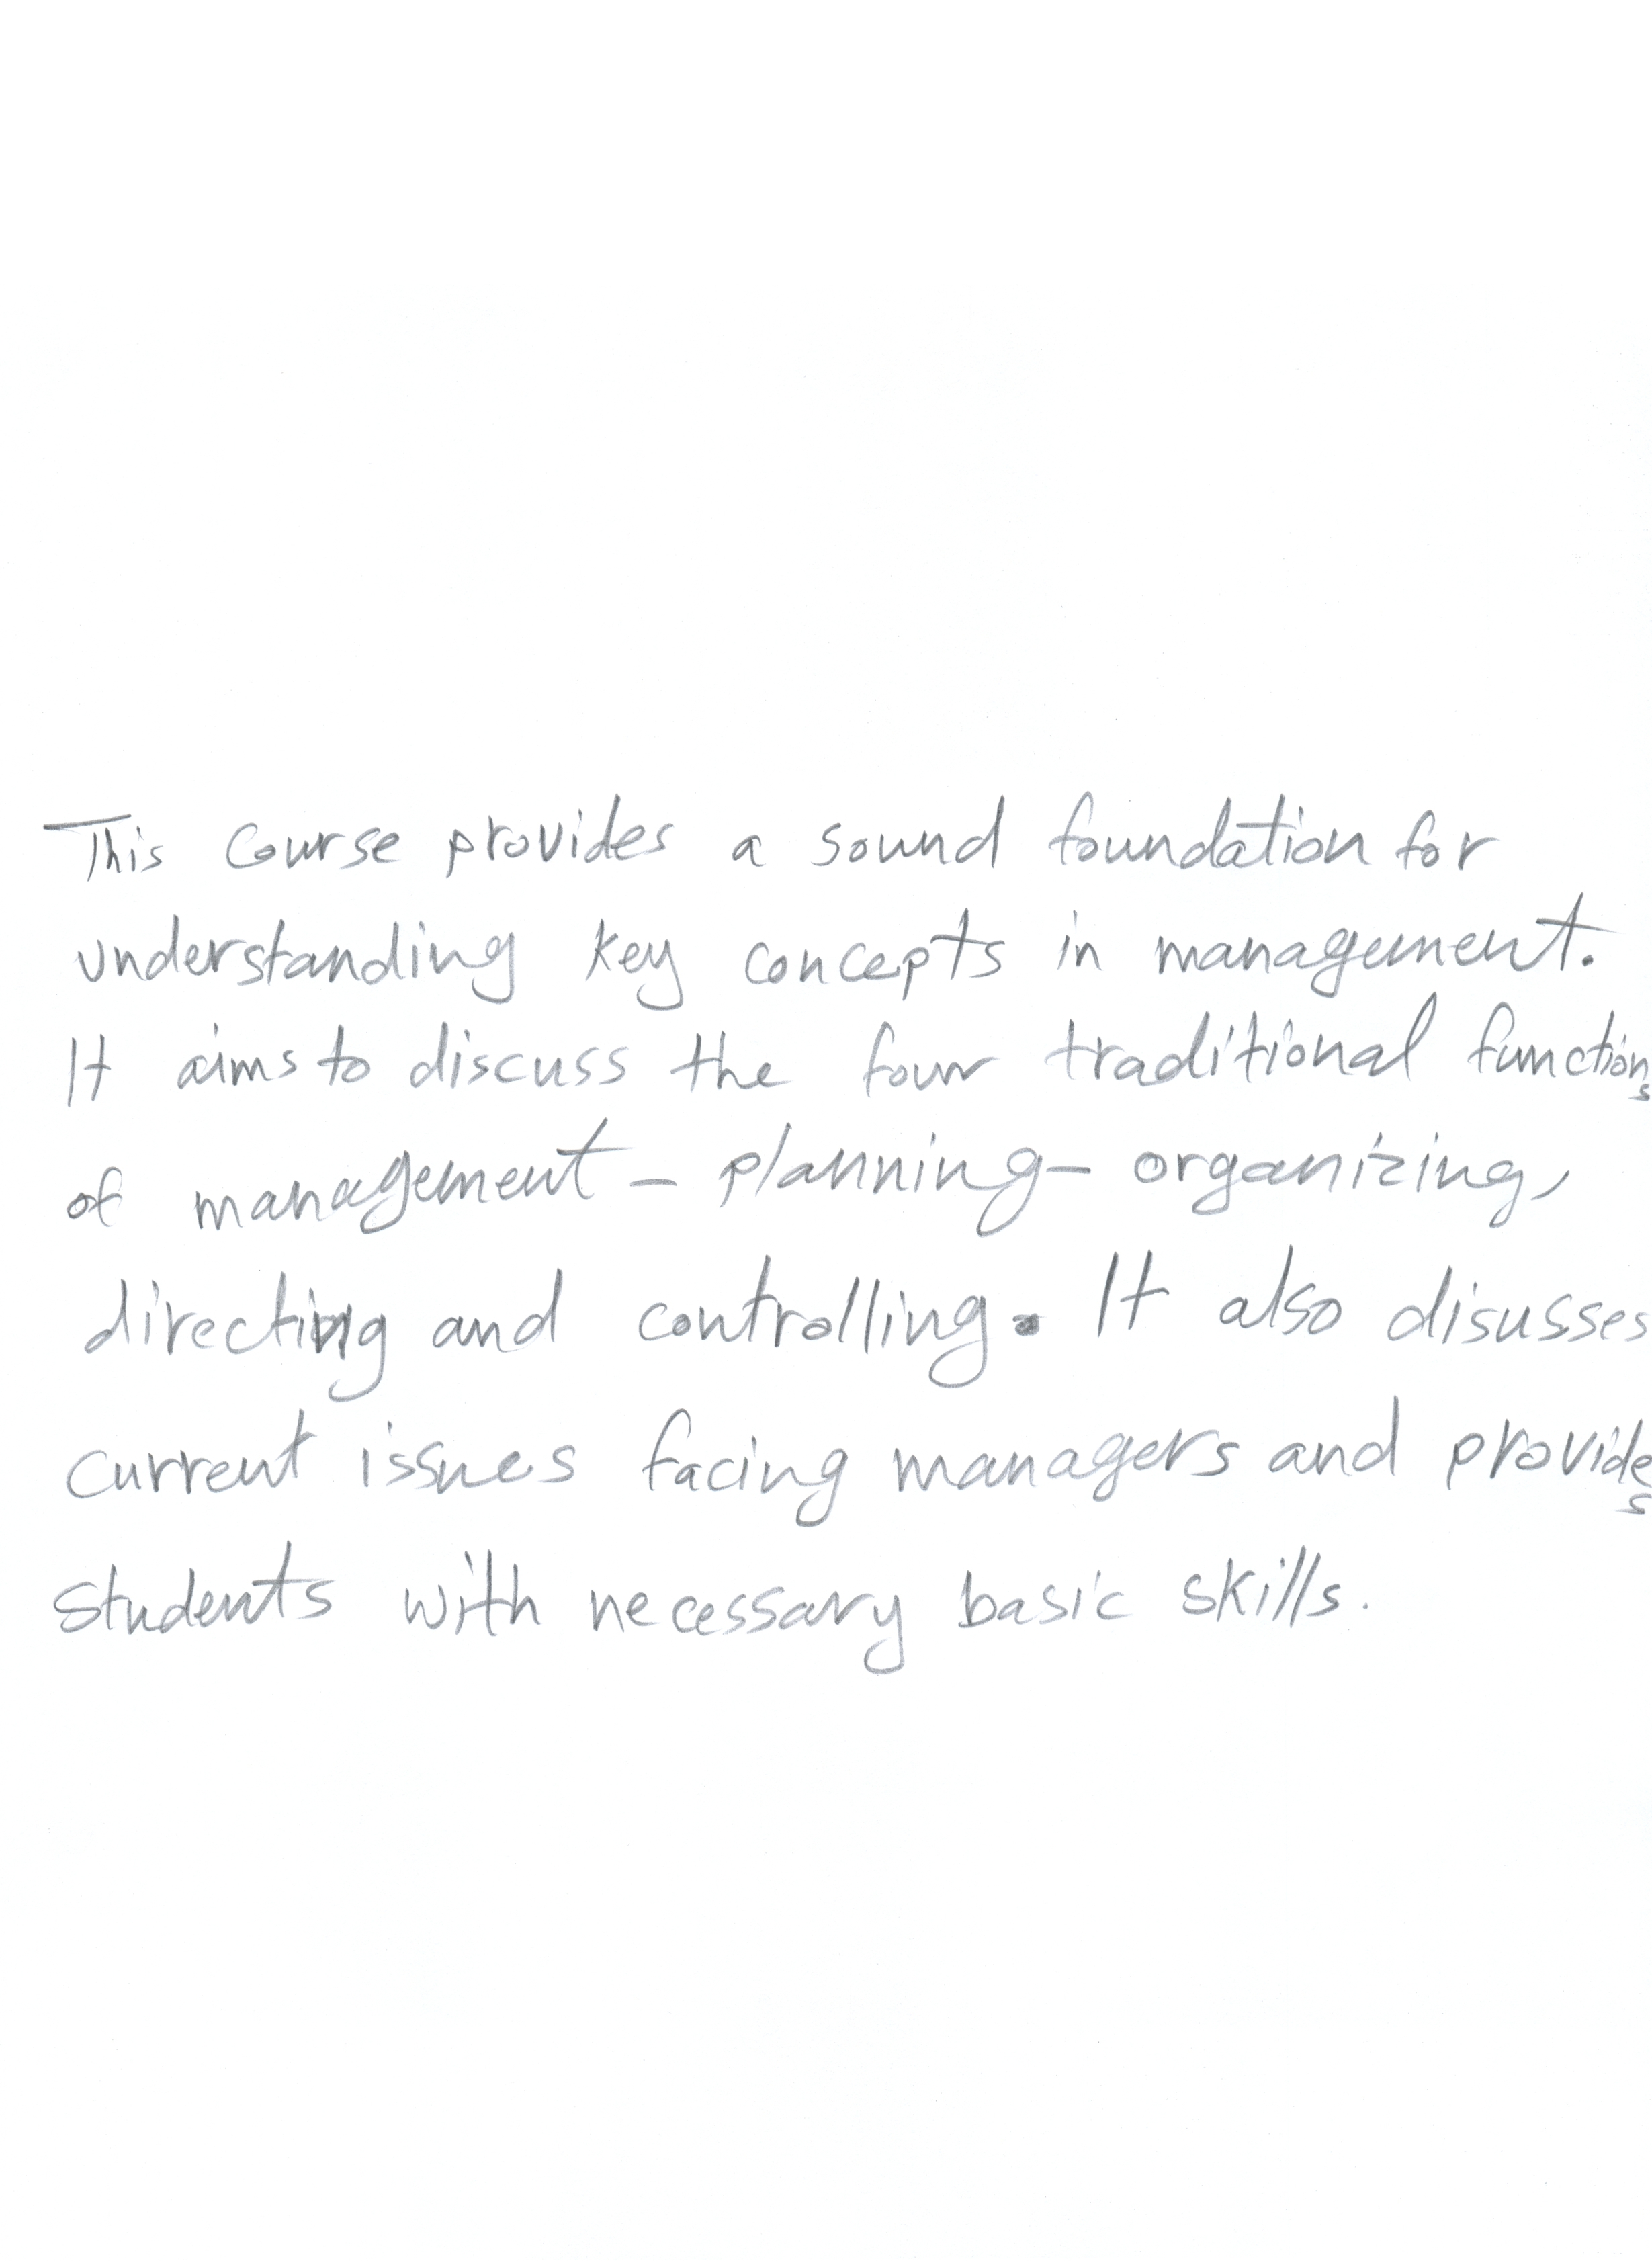 This course provides a sound foundation for
understanding key concepts in management.
It aims to discuss the four traditional functions
of management - planning - organizing,
directing and controlling. It also disusses
current issues facing managers and provides
students with necessary basic skills.